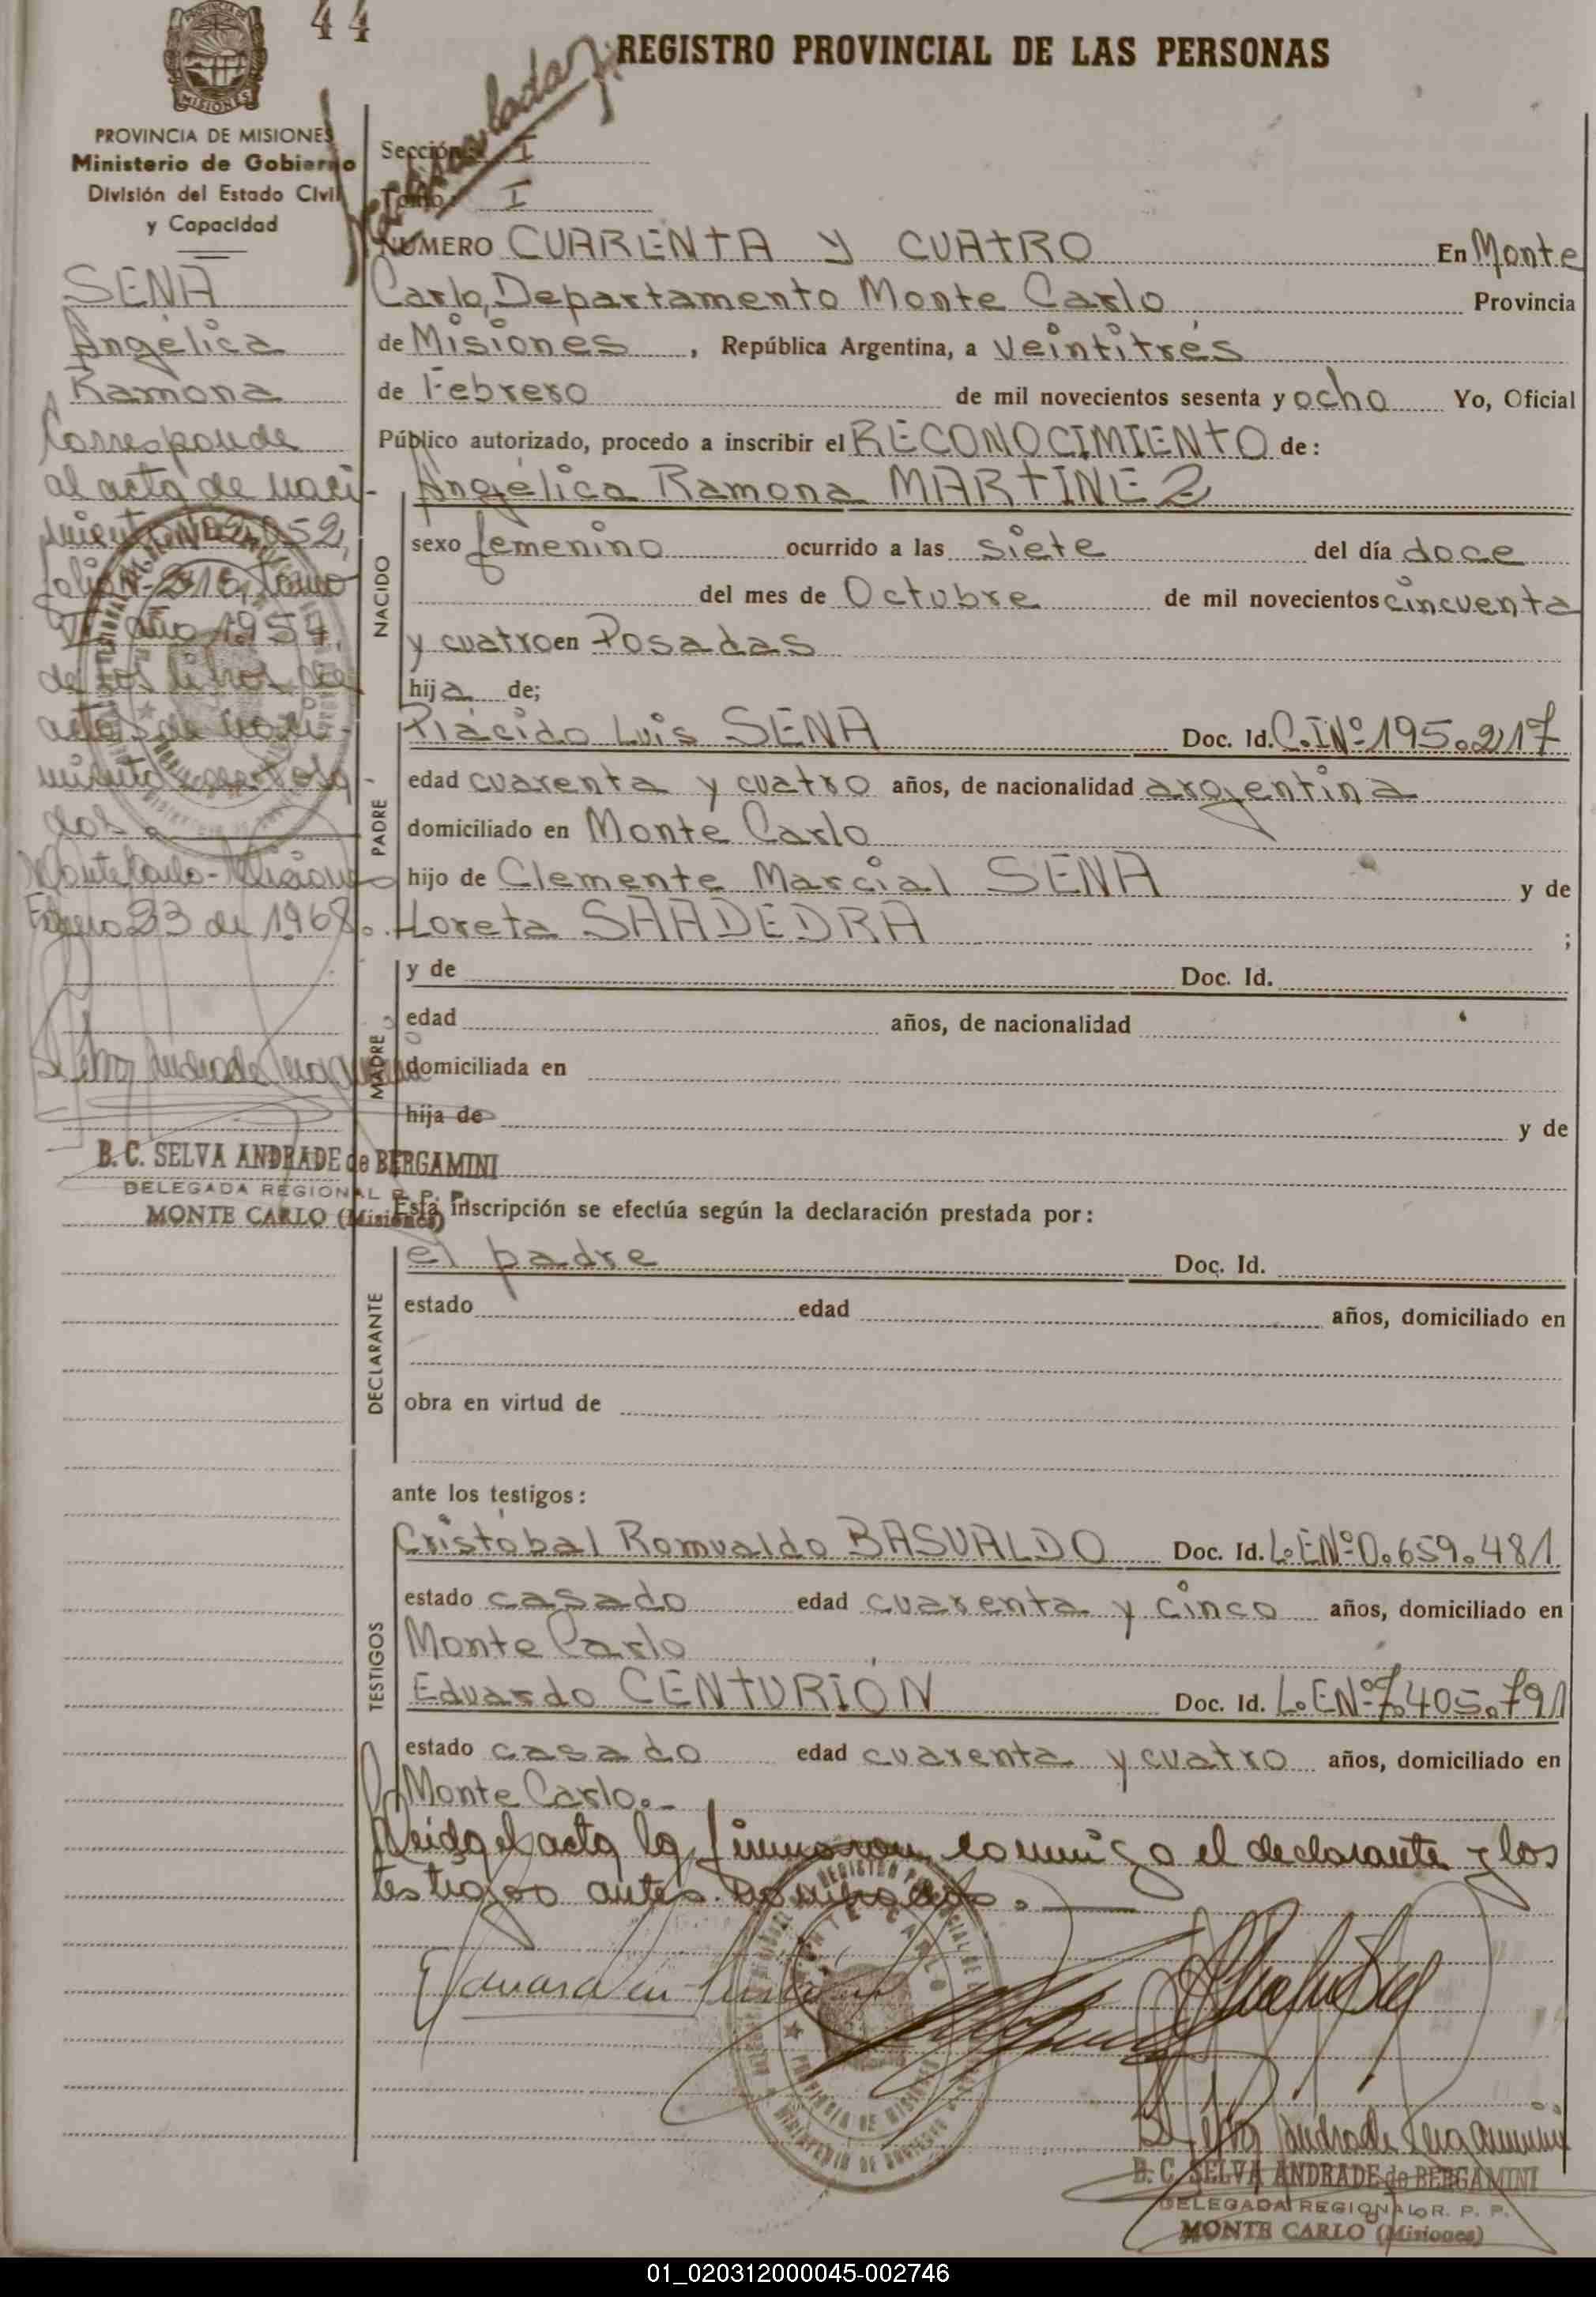 44
PROVINCIA DE MISIONES
REGISTRO PROVINCIAL DE LAS PERSONAS
PROVINCIA DE MISIONES
Ministerio de Gobierno
División del Estado Civil
y Capacidad
SENA
Angélica
Ramona
Corresponde
al acta de naci-
miento Nº 2.052,
folio Nº 216, tomo
año 1954,
de los libros de
actas de naci-
miento
Monte Carlo - Misiones
Febrero 23 de 1968.
B. C. SELVA ANDRADE de BERGAMINI
DELEGADA REGIONAL R. P. P.
MONTE CARLO (Misiones)
Sección I
Tomo I
NUMERO CUARENTA Y CUATRO En Monte
Carlo, Departamento Monte Carlo Provincia
de Misiones, República Argentina, a veintitrés
de Febrero de mil novecientos sesenta y ocho Yo, Oficial
Público autorizado, procedo a inscribir el RECONOCIMIENTO de:
Angélica Ramona MARTINEZ
NACIDO
sexo femenino ocurrido a las siete del día doce
del mes de Octubre de mil novecientos cincuenta
y cuatro en Posadas
hija de;
PADRE
Plácido Luis SENA Doc. Id. C.I Nº 195.217
edad cuarenta y cuatro años, de nacionalidad argentina
domiciliado en Monte Carlo
hijo de Clemente Marcial SENA y de
Loreta SAADEDRA ;
MADRE
y de Doc. Id.
edad años, de nacionalidad
domiciliada en
hija de y de
Esta inscripción se efectúa según la declaración prestada por:
DECLARANTE
el padre Doc. Id.
estado edad años, domiciliado en
obra en virtud de
ante los testigos:
TESTIGOS
Cristóbal Romualdo BASUALDO Doc. Id. L.E Nº 0.659.481
estado casado edad cuarenta y cinco años, domiciliado en
Monte Carlo
Eduardo CENTURIÓN Doc. Id. L.E Nº 7.405.791
estado casado edad cuarenta y cuatro años, domiciliado en
Monte Carlo.-
Leida el acta la firmaron conmigo el declarante y los
testigos antes nombrados.
MONTE CARLO
PROVINCIA DE MISIONES
B. C. SELVA ANDRADE de BERGAMINI
DELEGADA REGIONAL R. P. P.
MONTE CARLO (Misiones)
01_020312000045-002746